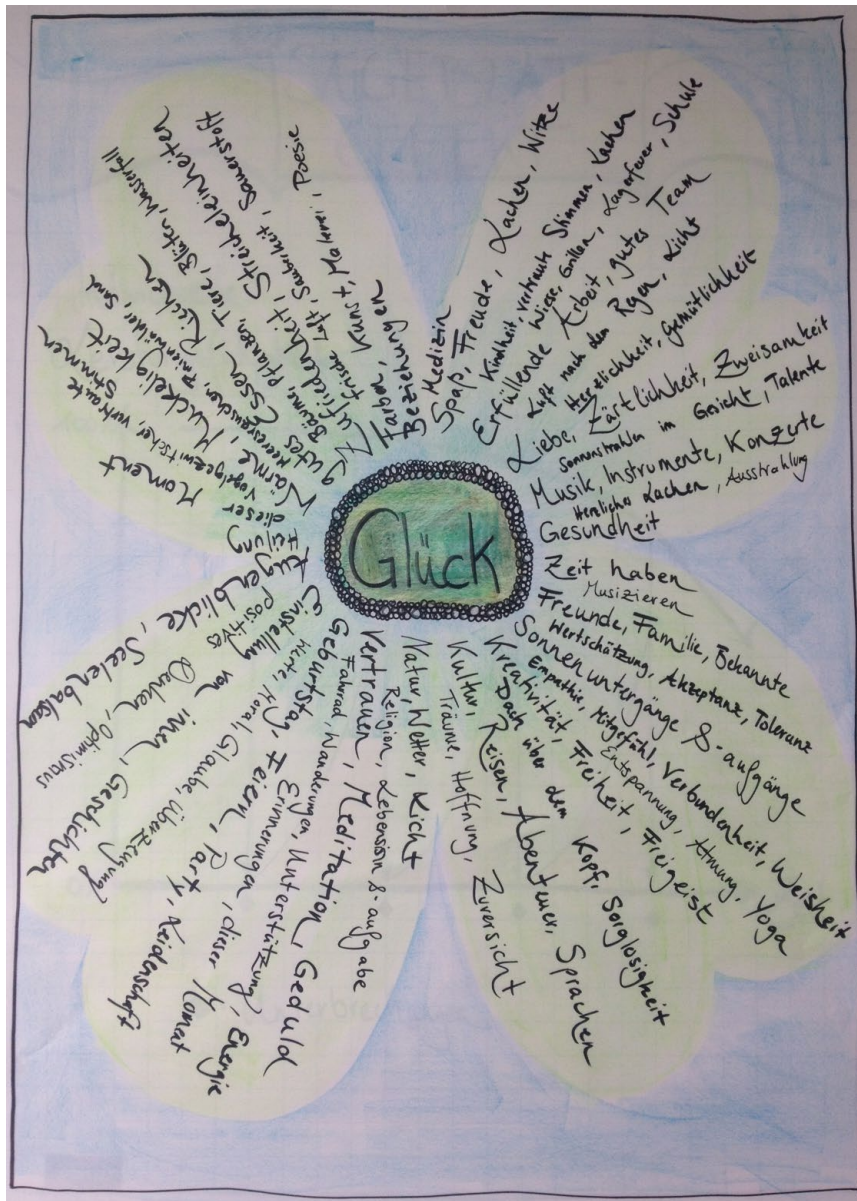 Glück
Medizin
Spaß, Freude, Lachen, Witze
Kindheit, vertraute Stimmen, Lachen
Wiese, Grillen, Lagerfeuer, Schule
Erfüllende Arbeit, gutes Team
Luft nach dem Regen, Licht
Herzlichkeit, Gemütlichkeit
Liebe, Zärtlichkeit, Zweisamkeit
Sonnenstrahlen im Gesicht, Talente
Musik, Instrumente, Konzerte
Herzliches Lachen, Ausstrahlung
Gesundheit
Zeit haben
Musizieren
Freunde, Familie, Bekannte
Wertschätzung, Akzeptanz, Toleranz
Sonnenuntergänge & -aufgänge
Empathie, Mitgefühl, Verbundenheit, Weisheit
Entspannung, Atmung, Yoga
Kreativität, Freiheit, Freigeist
Dach über dem Kopf, Sorglosigkeit
Kultur, Reisen, Abenteuer, Sprachen
Träume, Hoffnung, Zuversicht
Natur, Wetter, Licht
Religion, Lebenssinn & -aufgabe
Vertrauen, Meditation, Geduld
Fahrrad, Wanderungen, Unterstützung, Energie
Erinnerungen, dieser Moment
Geburtstag, Feiern, Party, Leidenschaft
Werte, Moral, Glaube, Überzeugung
Einstellung von innen, Geschichten
Positives Denken, Optimismus
Augenblicke, Seelenbalsam
Heilung
dieser Moment
Vogelgezwitscher, vertraute Stimmen
Wärme, Muckeligkeit
Meeresrauschen, Pinienwälder, Sand
gutes Essen, Riechen
Bäume, Pflanzen, Tiere, Blüten, Wasserfall
Zufriedenheit, Streicheleinheiten
frische Luft, Sauberkeit, Sauerstoff
Farben, Kunst, Malerei, Poesie
Beziehungen